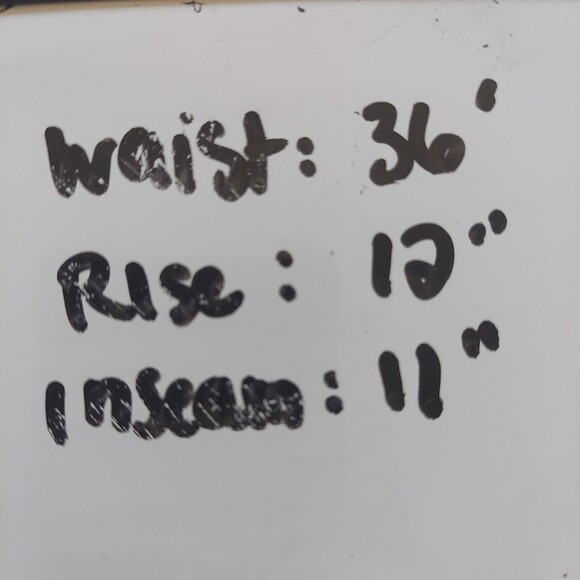 Waist: 36'
Rise: 12"
Inseam: 11"